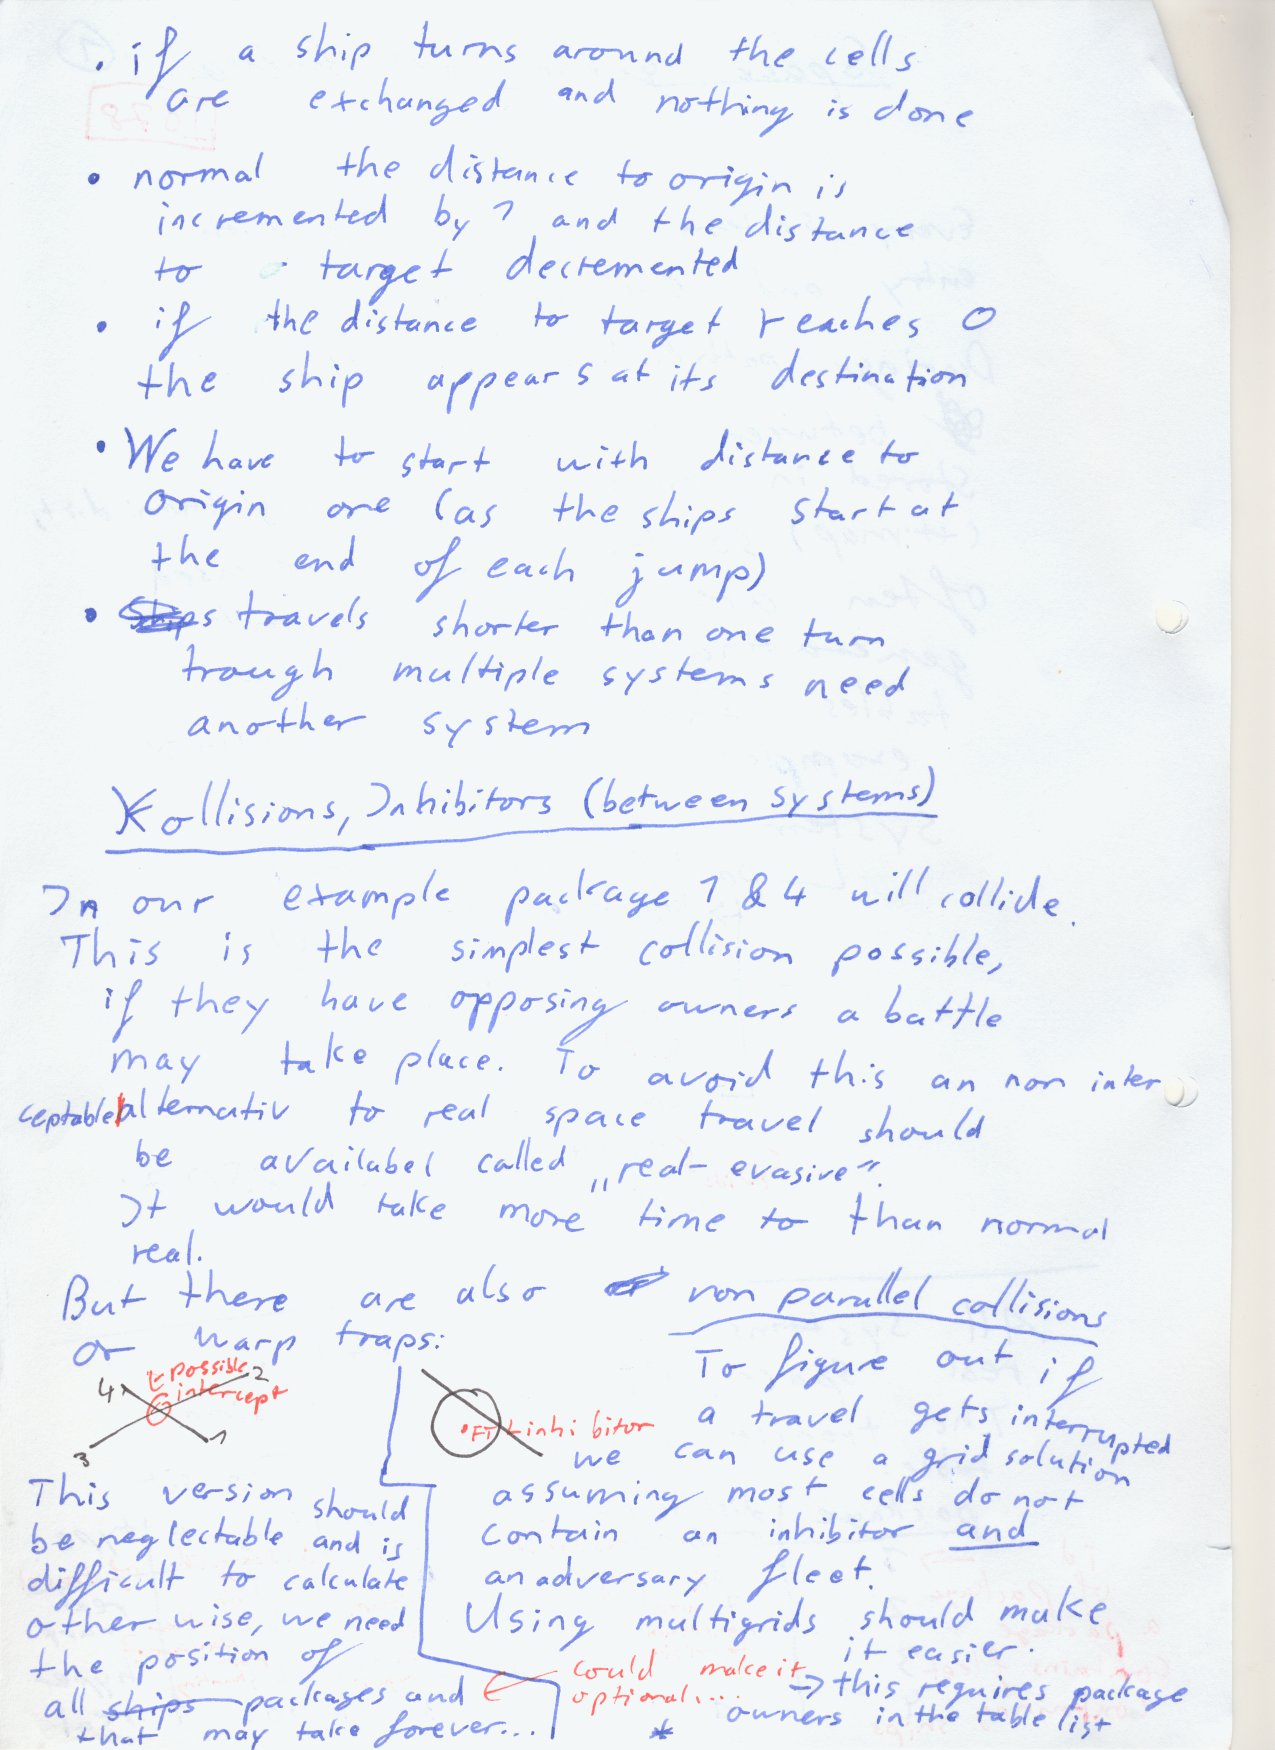 • if a ship turns around the cells
are exchanged and nothing is done
• normal the distance to origin is
incremented by 1 and the distance
to target decremented
• if the distance to target reaches 0
the ship appears at its destination
• We have to start with distance to
origin one (as the ships start at
the end of each jump)
• Ships travels shorter than one turn
trough multiple systems need
another system
Kollisions, Inhibitors (between systems)
In our example package 1 & 4 will collide.
This is the simplest collision possible,
if they have opposing owners a battle
may take place. To avoid this an non inter
ceptable alternativ to real space travel should
be availabel called „real-evasive".
It would take more time to than normal
real.
But there are also non parallel collisions
or warp traps:
4
possible
intercept
2
3
1
This version should
be neglectable and is
difficult to calculate
other wise, we need
the position of
all ships packages and
that may take forever...
inhibitor
To figure out if
a travel gets interrupted
we can use a grid solution
assuming most cells do not
contain an inhibitor and
an adversary fleet.
Using multigrids should make
it easier.
could make it
optional...
→ this requires package
owners in the table list
*